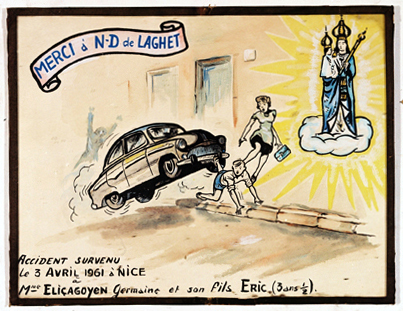 MERCI à N-D de LAGHET
ACCIDENT SURVENU
Le 3 AVRIL 1961 à NICE
à
Mme ELIÇAGOYEN Germaine et son fils ERIC (3 ans ½).